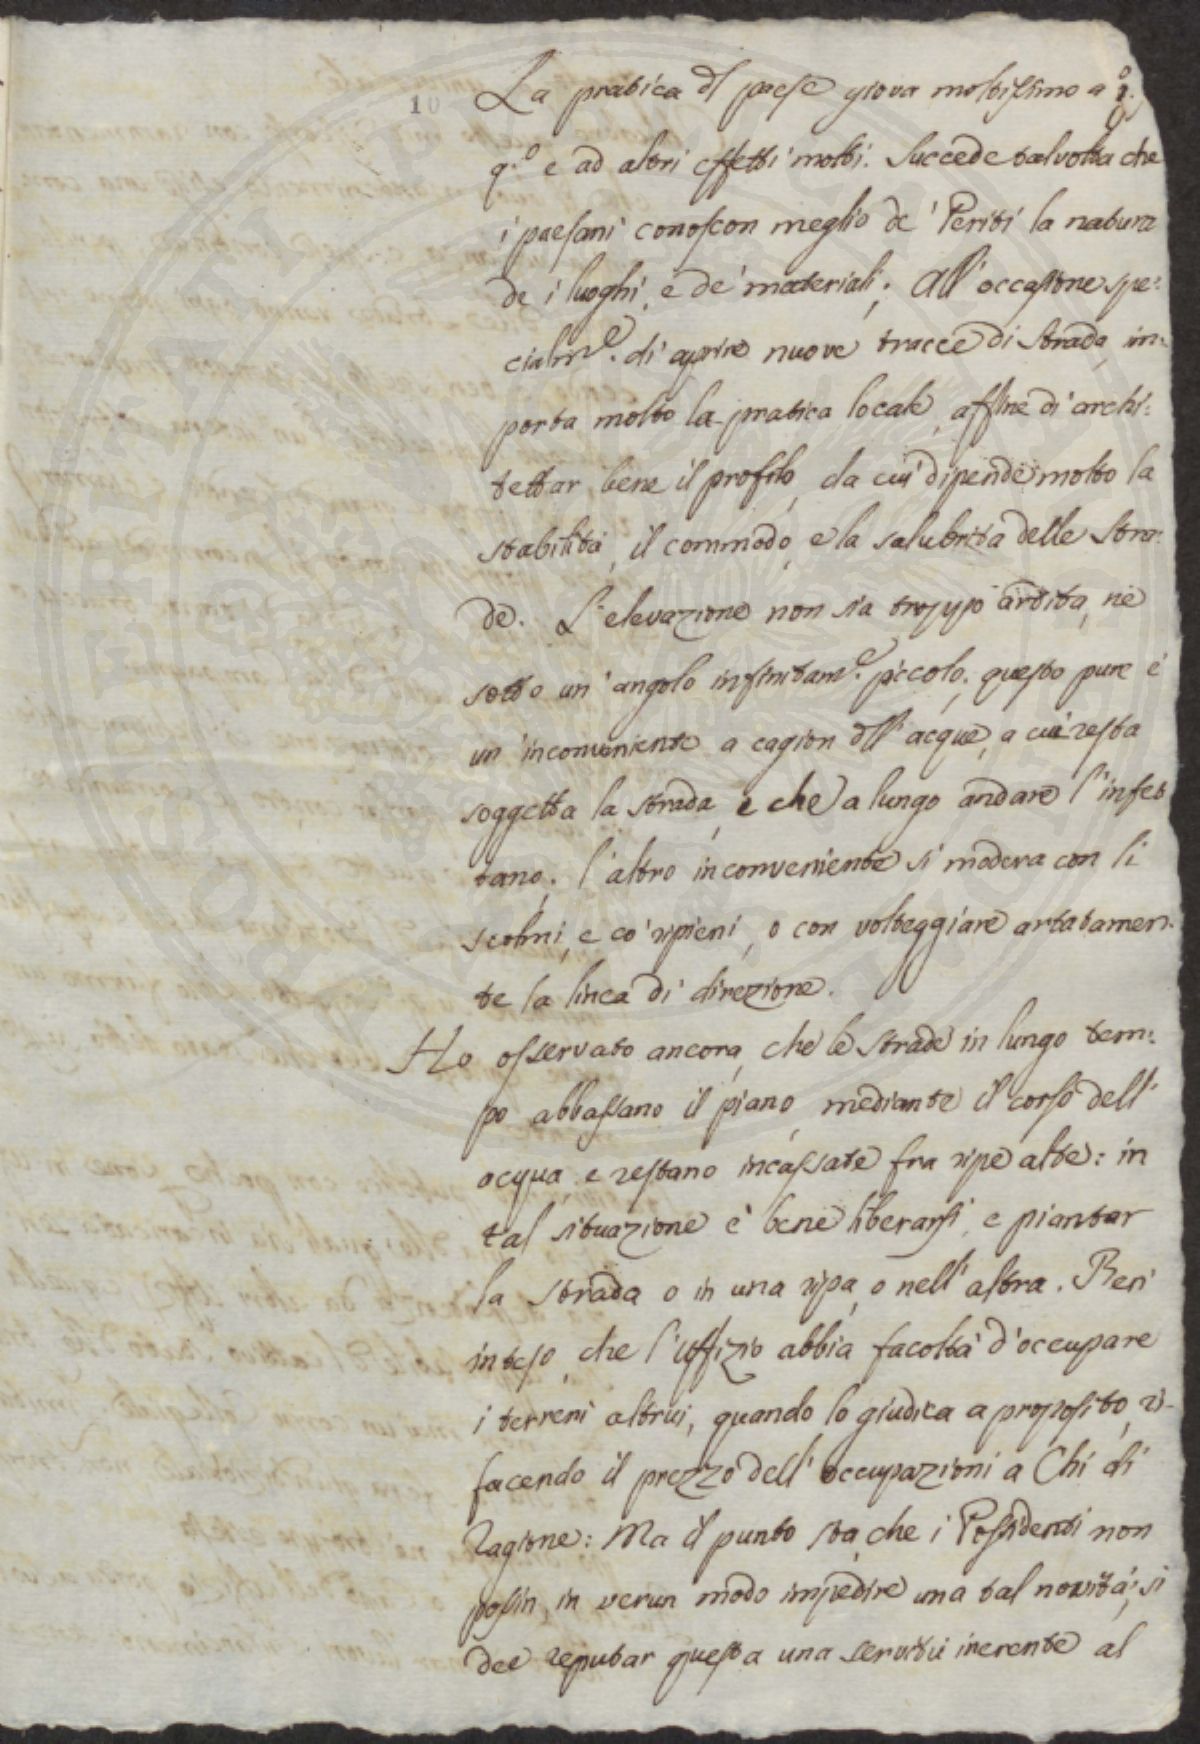 10 La pratica dl paese giova moltissimo a
q.o e ad altri effetti molti. Succede talvolta che
i paesani conoscon meglio de' Periti la natura
de i luoghi, e de' materiali; All' occasione spe:
cialm.e di aprire nuove tracce di strada, im:
porta molto la pratica locale, affine di archi:
tettar bene il profilo, da cui dipende molto la
stabilità, il commodo, e la salubrità delle stra:
de. L'elevazione non sia troppo ardita, nè
sotto un' angolo infinitam.e piccolo; questo pure è
un' inconveniente a cagion dll' acque, a cui resta
soggetta la strada, e che a lungo andare l' infet
tano; l'altro inconveniente si modera con li
scolmi, e co' ripieni, o con volteggiare artatamen:
te la linea di direzione.
Ho osservato ancora, che le strade in lungo tem:
po abbassano il piano, mediante il corso dell'
acqua, e restano incassate fra ripe alte: in
tal situazione è bene liberarsi, e piantar
la strada o in una ripa, o nell' altra. Ben
inteso, che l'Uffizio abbia facoltà d'occupare
i terreni altrui, quando lo giudica a proposito, ri-
facendo il prezzo dell' occupazioni a Chi di
Ragione: Ma il punto sta, che i Possidenti non
possin, in verun modo impedire una tal novità; si
dee reputar questa una servitù inerente al